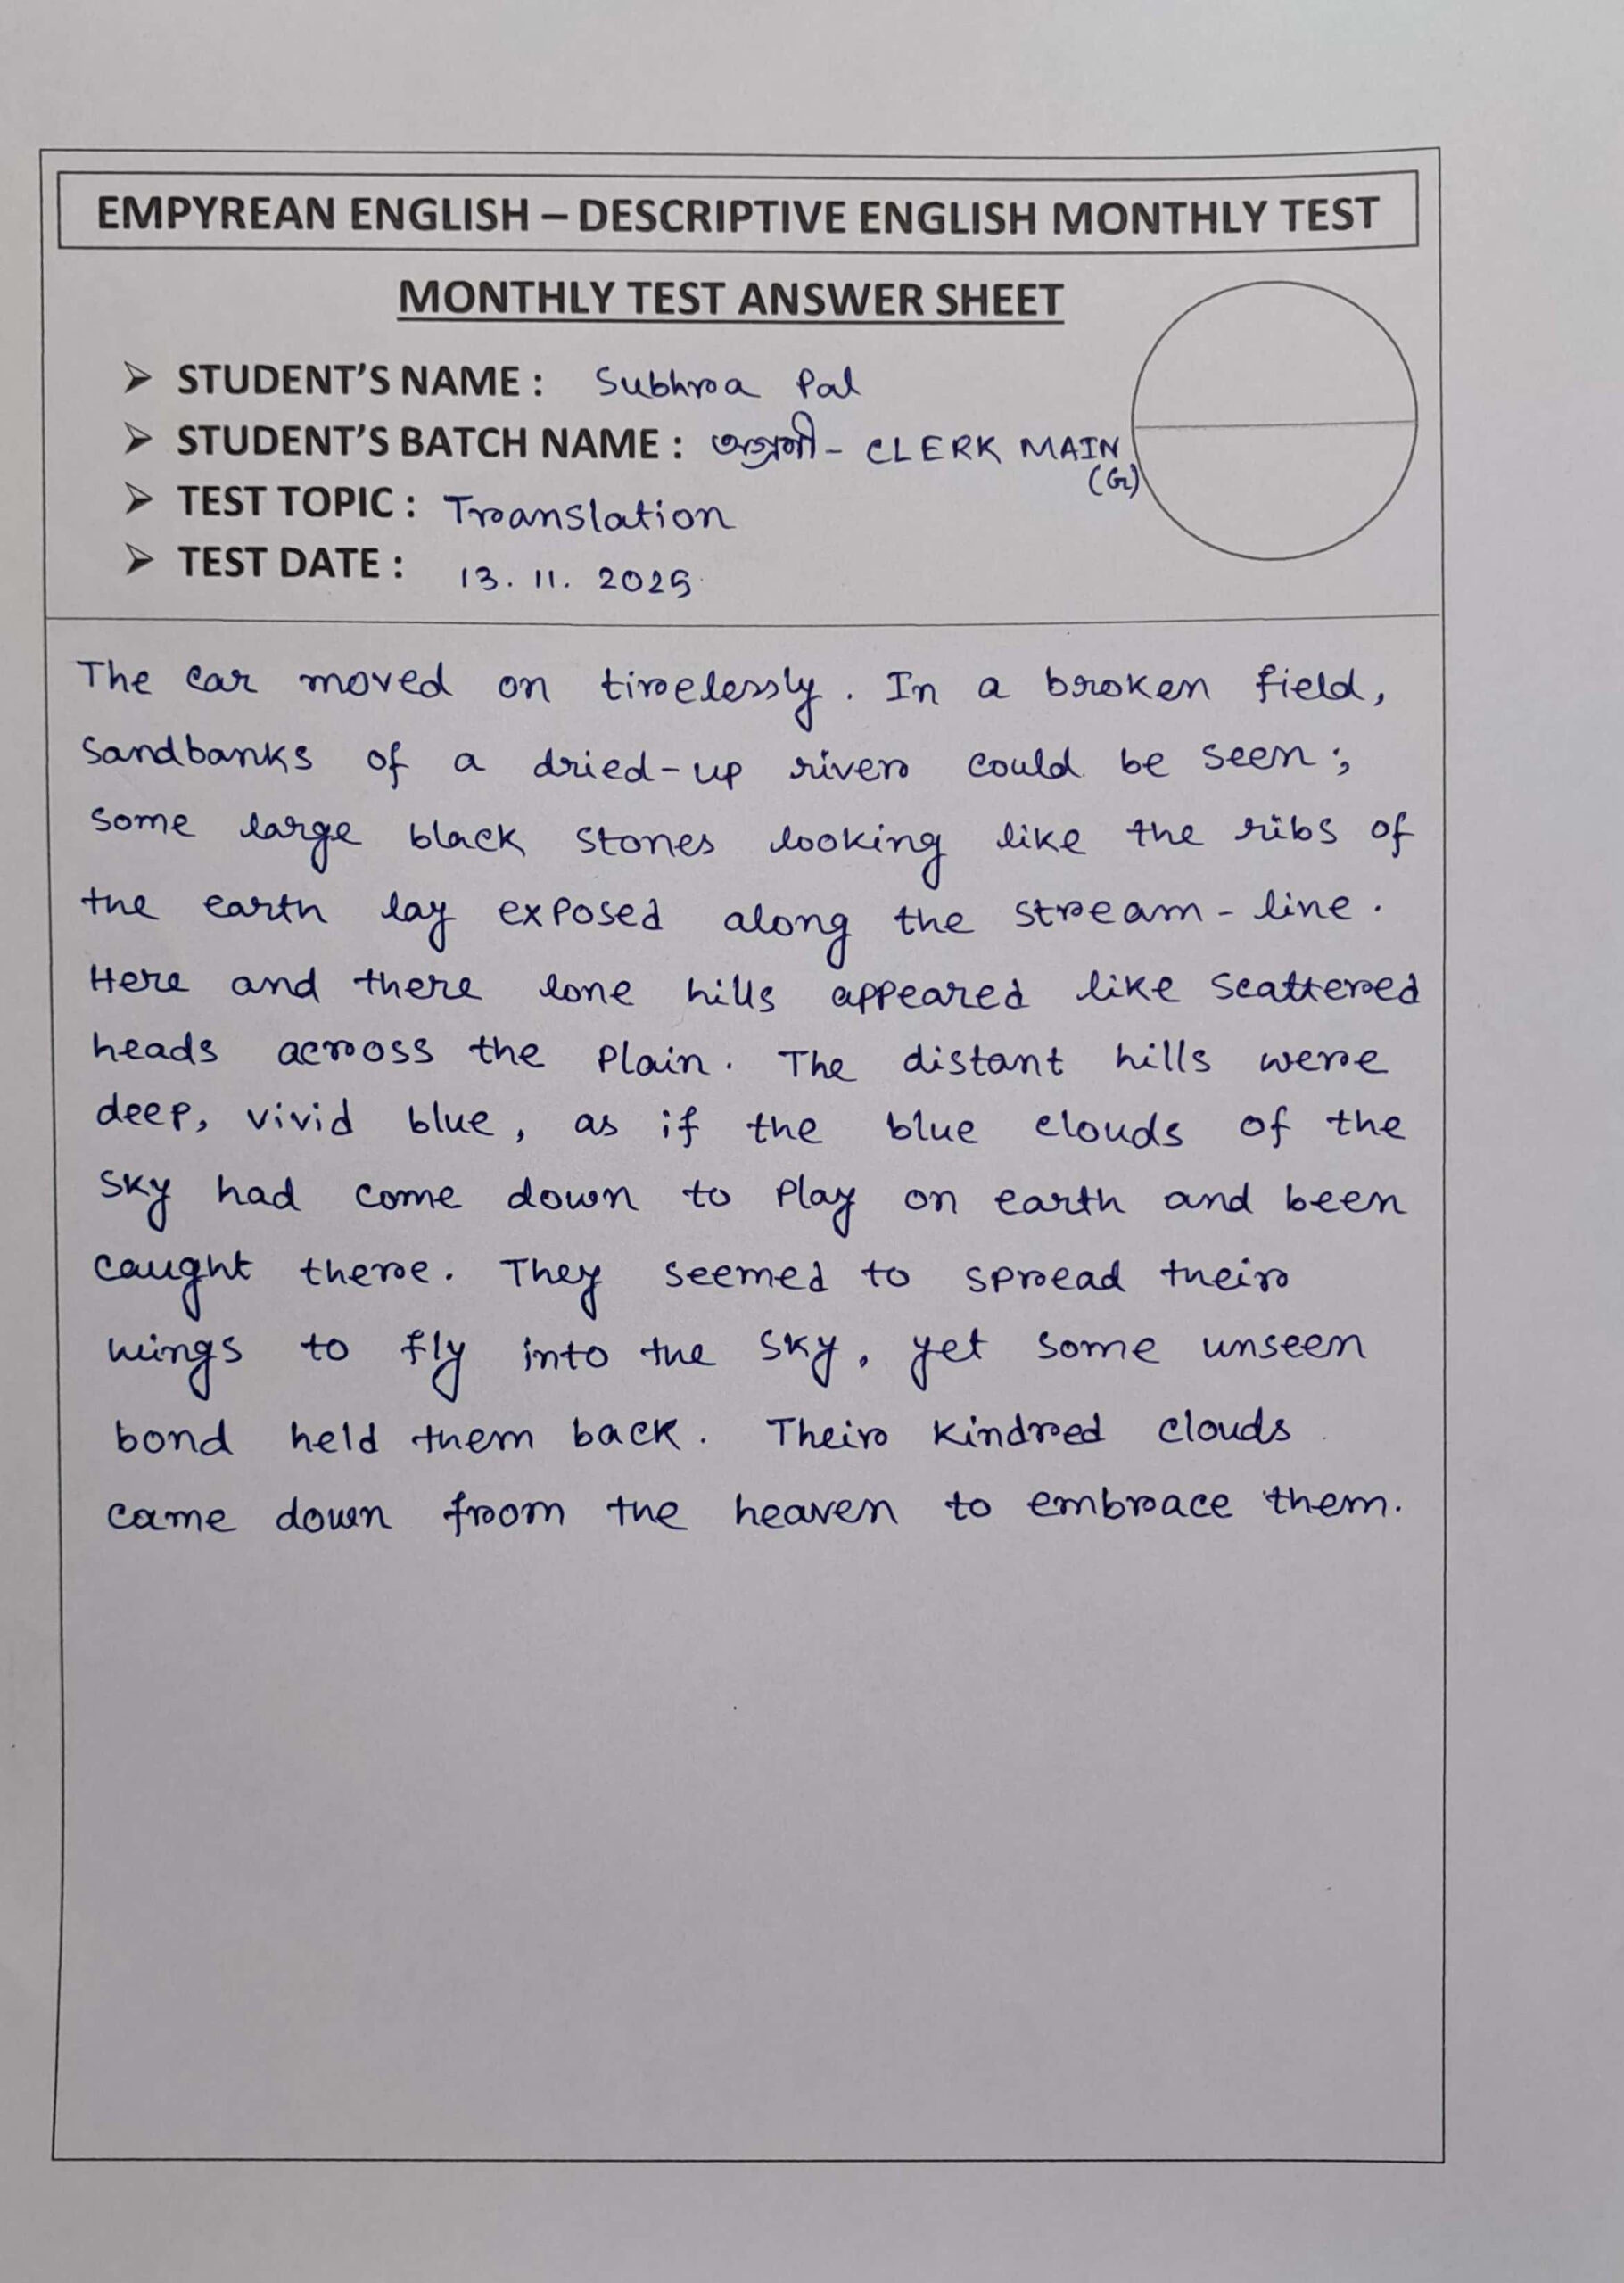 EMPYREAN ENGLISH – DESCRIPTIVE ENGLISH MONTHLY TEST
MONTHLY TEST ANSWER SHEET
➢ STUDENT'S NAME : Subhra Pal
➢ STUDENT'S BATCH NAME : অগ্রণী - CLERK MAIN
(G)
➢ TEST TOPIC : Translation
➢ TEST DATE : 13. 11. 2025
The car moved on tirelessly. In a broken field,
sandbanks of a dried-up river could be seen;
some large black stones looking like the ribs of
the earth lay exposed along the stream-line.
Here and there lone hills appeared like scattered
heads across the plain. The distant hills were
deep, vivid blue, as if the blue clouds of the
sky had come down to play on earth and been
caught there. They seemed to spread their
wings to fly into the sky, yet some unseen
bond held them back. Their kindred clouds
came down from the heaven to embrace them.